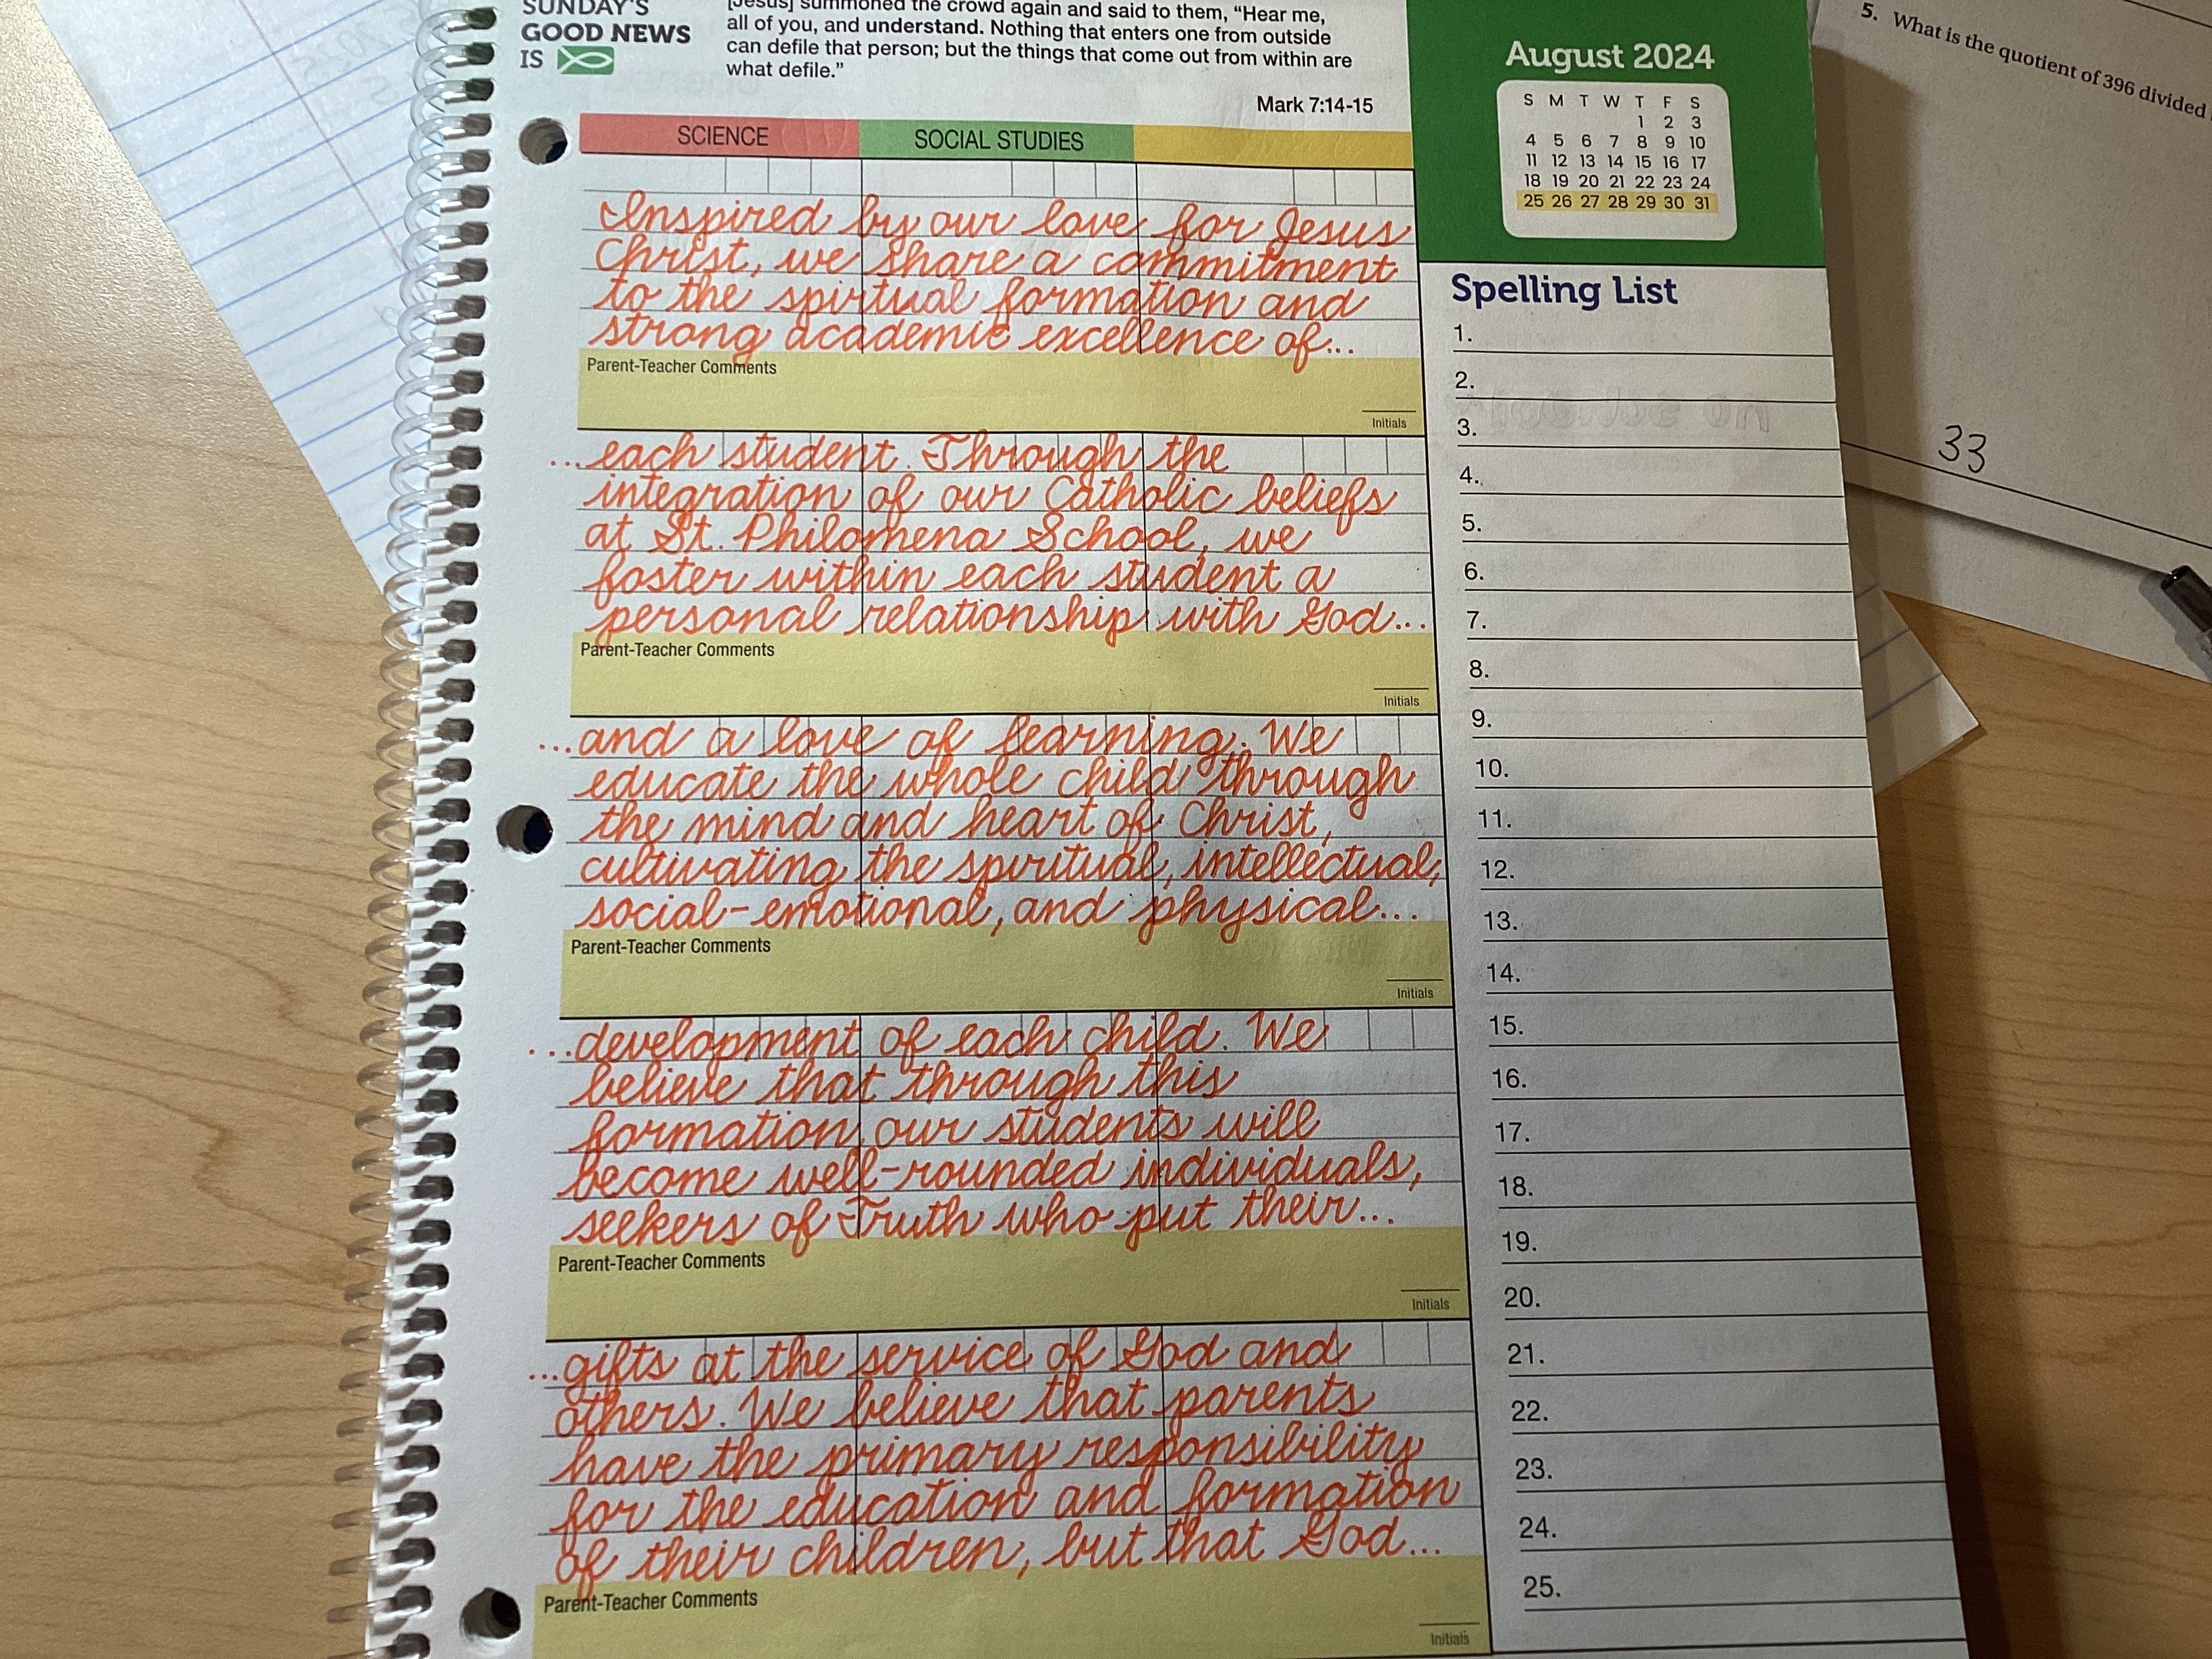 SUNDAY'S
GOOD NEWS
IS
[Jesus] summoned the crowd again and said to them, “Hear me,
all of you, and understand. Nothing that enters one from outside
can defile that person; but the things that come out from within are
what defile.”
Mark 7:14-15
SCIENCE SOCIAL STUDIES
Inspired by our love for Jesus
Christ, we share a commitment
to the spirtual formation and
strong academic excellence of...
Parent-Teacher Comments
Initials
...each student. Through the
integration of our Catholic beliefs
at St. Philomena School, we
foster within each student a
personal relationship with God...
Parent-Teacher Comments
Initials
...and a love of learning. We
educate the whole child through
the mind and heart of Christ,
cultivating the spiritual, intellectual,
social-emotional, and physical...
Parent-Teacher Comments
Initials
...development of each child. We
believe that through this
formation our students will
become well-rounded individuals,
seekers of Truth who put their...
Parent-Teacher Comments
Initials
...gifts at the service of God and
others. We believe that parents
have the primary responsibility
for the education and formation
of their children, but that God...
Parent-Teacher Comments
Initials
August 2024
S M T W T F S
1 2 3
4 5 6 7 8 9 10
11 12 13 14 15 16 17
18 19 20 21 22 23 24
25 26 27 28 29 30 31
Spelling List
1.
2.
3.
4.
5.
6.
7.
8.
9.
10.
11.
12.
13.
14.
15.
16.
17.
18.
19.
20.
21.
22.
23.
24.
25.
5. What is the quotient of 396 divided
33